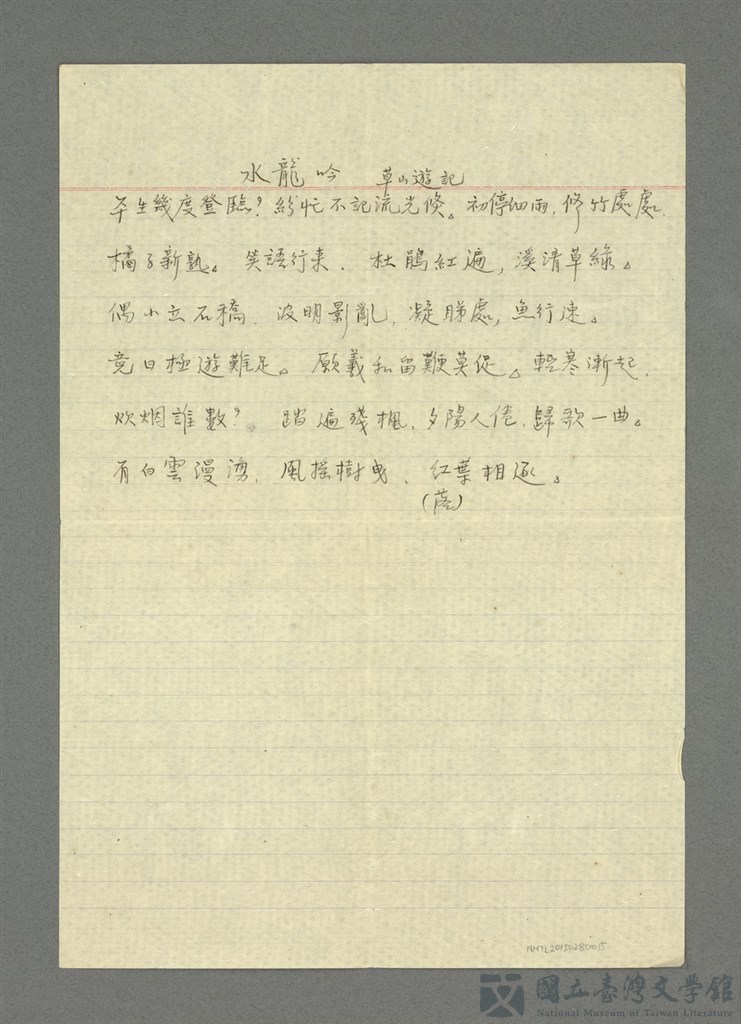 水龍吟 草山遊記
平生幾度登臨?紛忙不記流光倏。初停細雨,修竹處處,
橘子新熟。笑語行來,杜鵑紅遍,溪清草綠。
偶小立石橋,波明影亂,凝睇處,魚行速。
竟日極遊難足。願羲和留鞭莫促。輕寒漸起,
炊烟誰數?踏遍殘楓,夕陽人倦,歸歌一曲。
有白雲漫湧,風搖樹曳,紅葉相逐。
(落)
NMTL20150280015
國立臺灣文學館
National Museum of Taiwan Literature